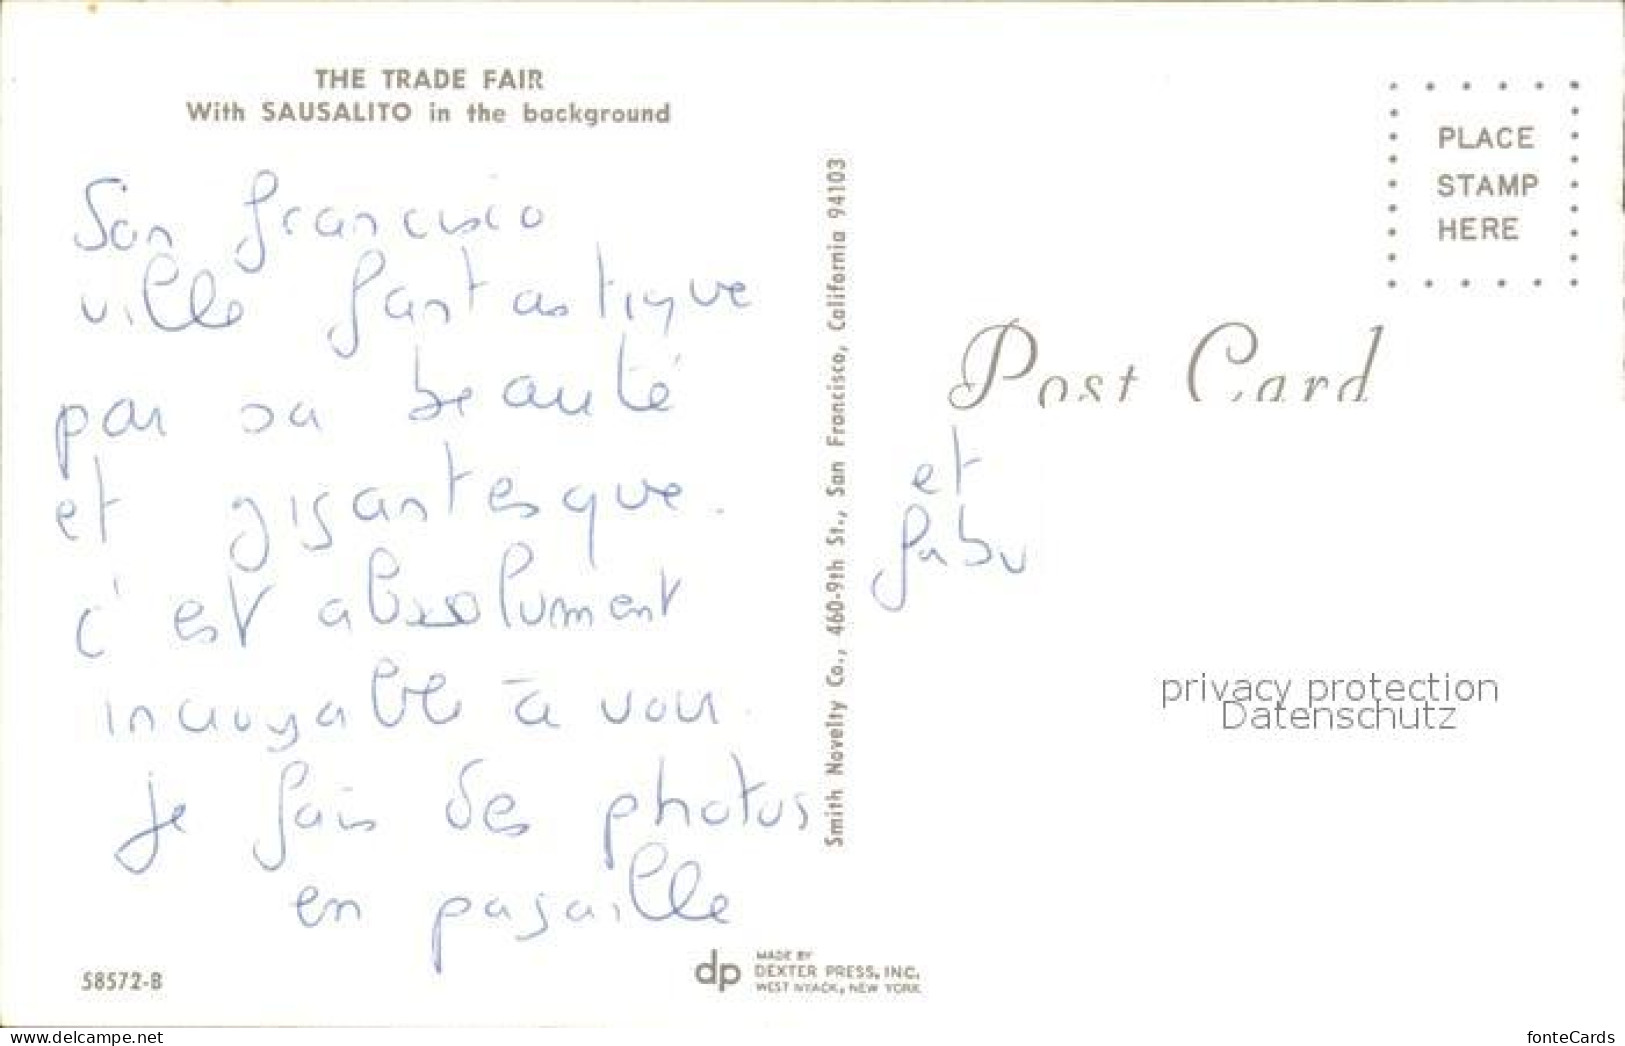 THE TRADE FAIR
With SAUSALITO in the background
San francisco
ville fantastique
par sa beauté
et gigantesque.
c'est absolument
incroyable à voir.
je fais des photos
en pagaille
58572-B
dp
MADE BY
DEXTER PRESS, INC.
WEST NYACK, NEW YORK
Smith Novelty Co., 460-9th St., San Francisco, California 94103
PLACE
STAMP
HERE
Post Card
et
privacy protection
Datenschutz
www.delcampe.net
fonteCards